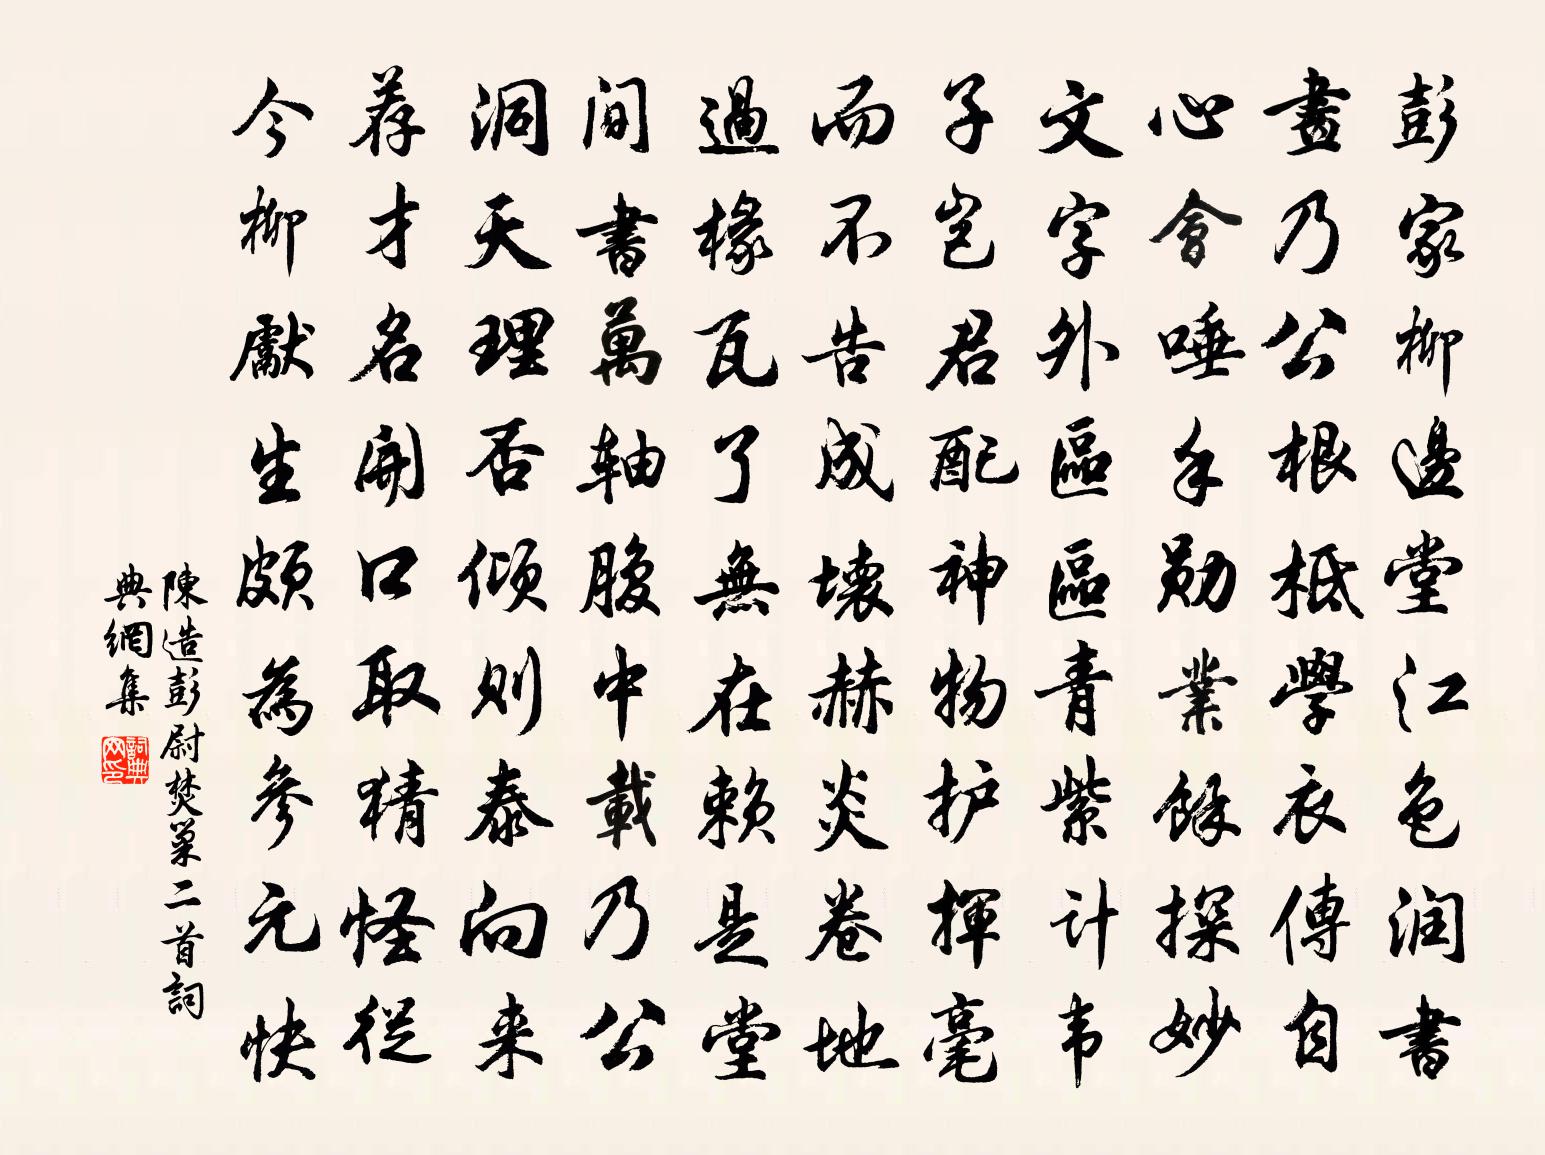 彭家柳邊堂江色润書
畫乃公根柢學衣傳自
心會唾手勋業餘探妙
文字外區區青紫计韦
子岂君配神物护揮毫
而不告成壊赫炎卷地
過椽瓦了無在赖是堂
间書萬轴腹中載乃公
洞天理否倾则泰向来
荐才名開口取猜怪從
今柳獻生頗為参元快
陳造彭尉焚巢二首詞
典網集
詞典網印